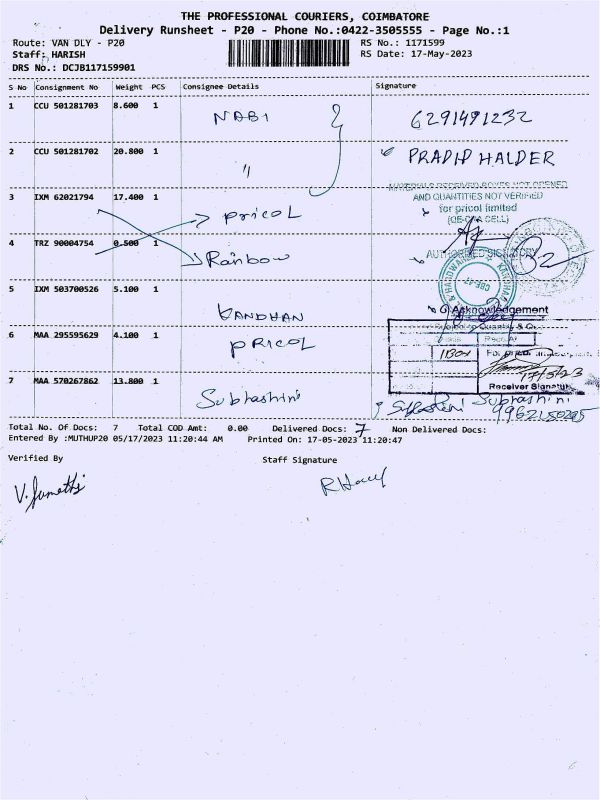 THE PROFESSIONAL COURIERS, COIMBATORE
Delivery Runsheet - P20 - Phone No.:0422-3505555 - Page No.:1
Route: VAN DLY - P20 RS No.: 1171599
Staff: HARISH RS Date: 17-May-2023
DRS No.: DCJB117159901
S No Consignment No Weight PCS Consignee Details Signature
1 CCU 501281703 8.600 1 NABI 6291491232
2 CCU 501281702 20.800 1 " PRADIP HALDER
MATERIALS RECEIVED BOXES NOT OPENED
3 IXM 62021794 17.400 1 AND QUANTITIES NOT VERIFIED
pricoL for pricol limited
4 TRZ 90004754 0.500 1 AUTHORISED SIGNATORY
Rainbow
5 IXM 503700526 5.100 1
BANDHAN Acknowledgement
6 MAA 295595629 4.100 1
PRICOL
7 MAA 570267862 13.800 1 17/5/23
Receiver Signature
Subhashini Subhashini
9962150295
Total No. Of Docs: 7 Total COD Amt: 0.00 Delivered Docs: 7 Non Delivered Docs:
Entered By :MUTHUP20 05/17/2023 11:20:44 AM Printed On: 17-05-2023 11:20:47
Verified By Staff Signature